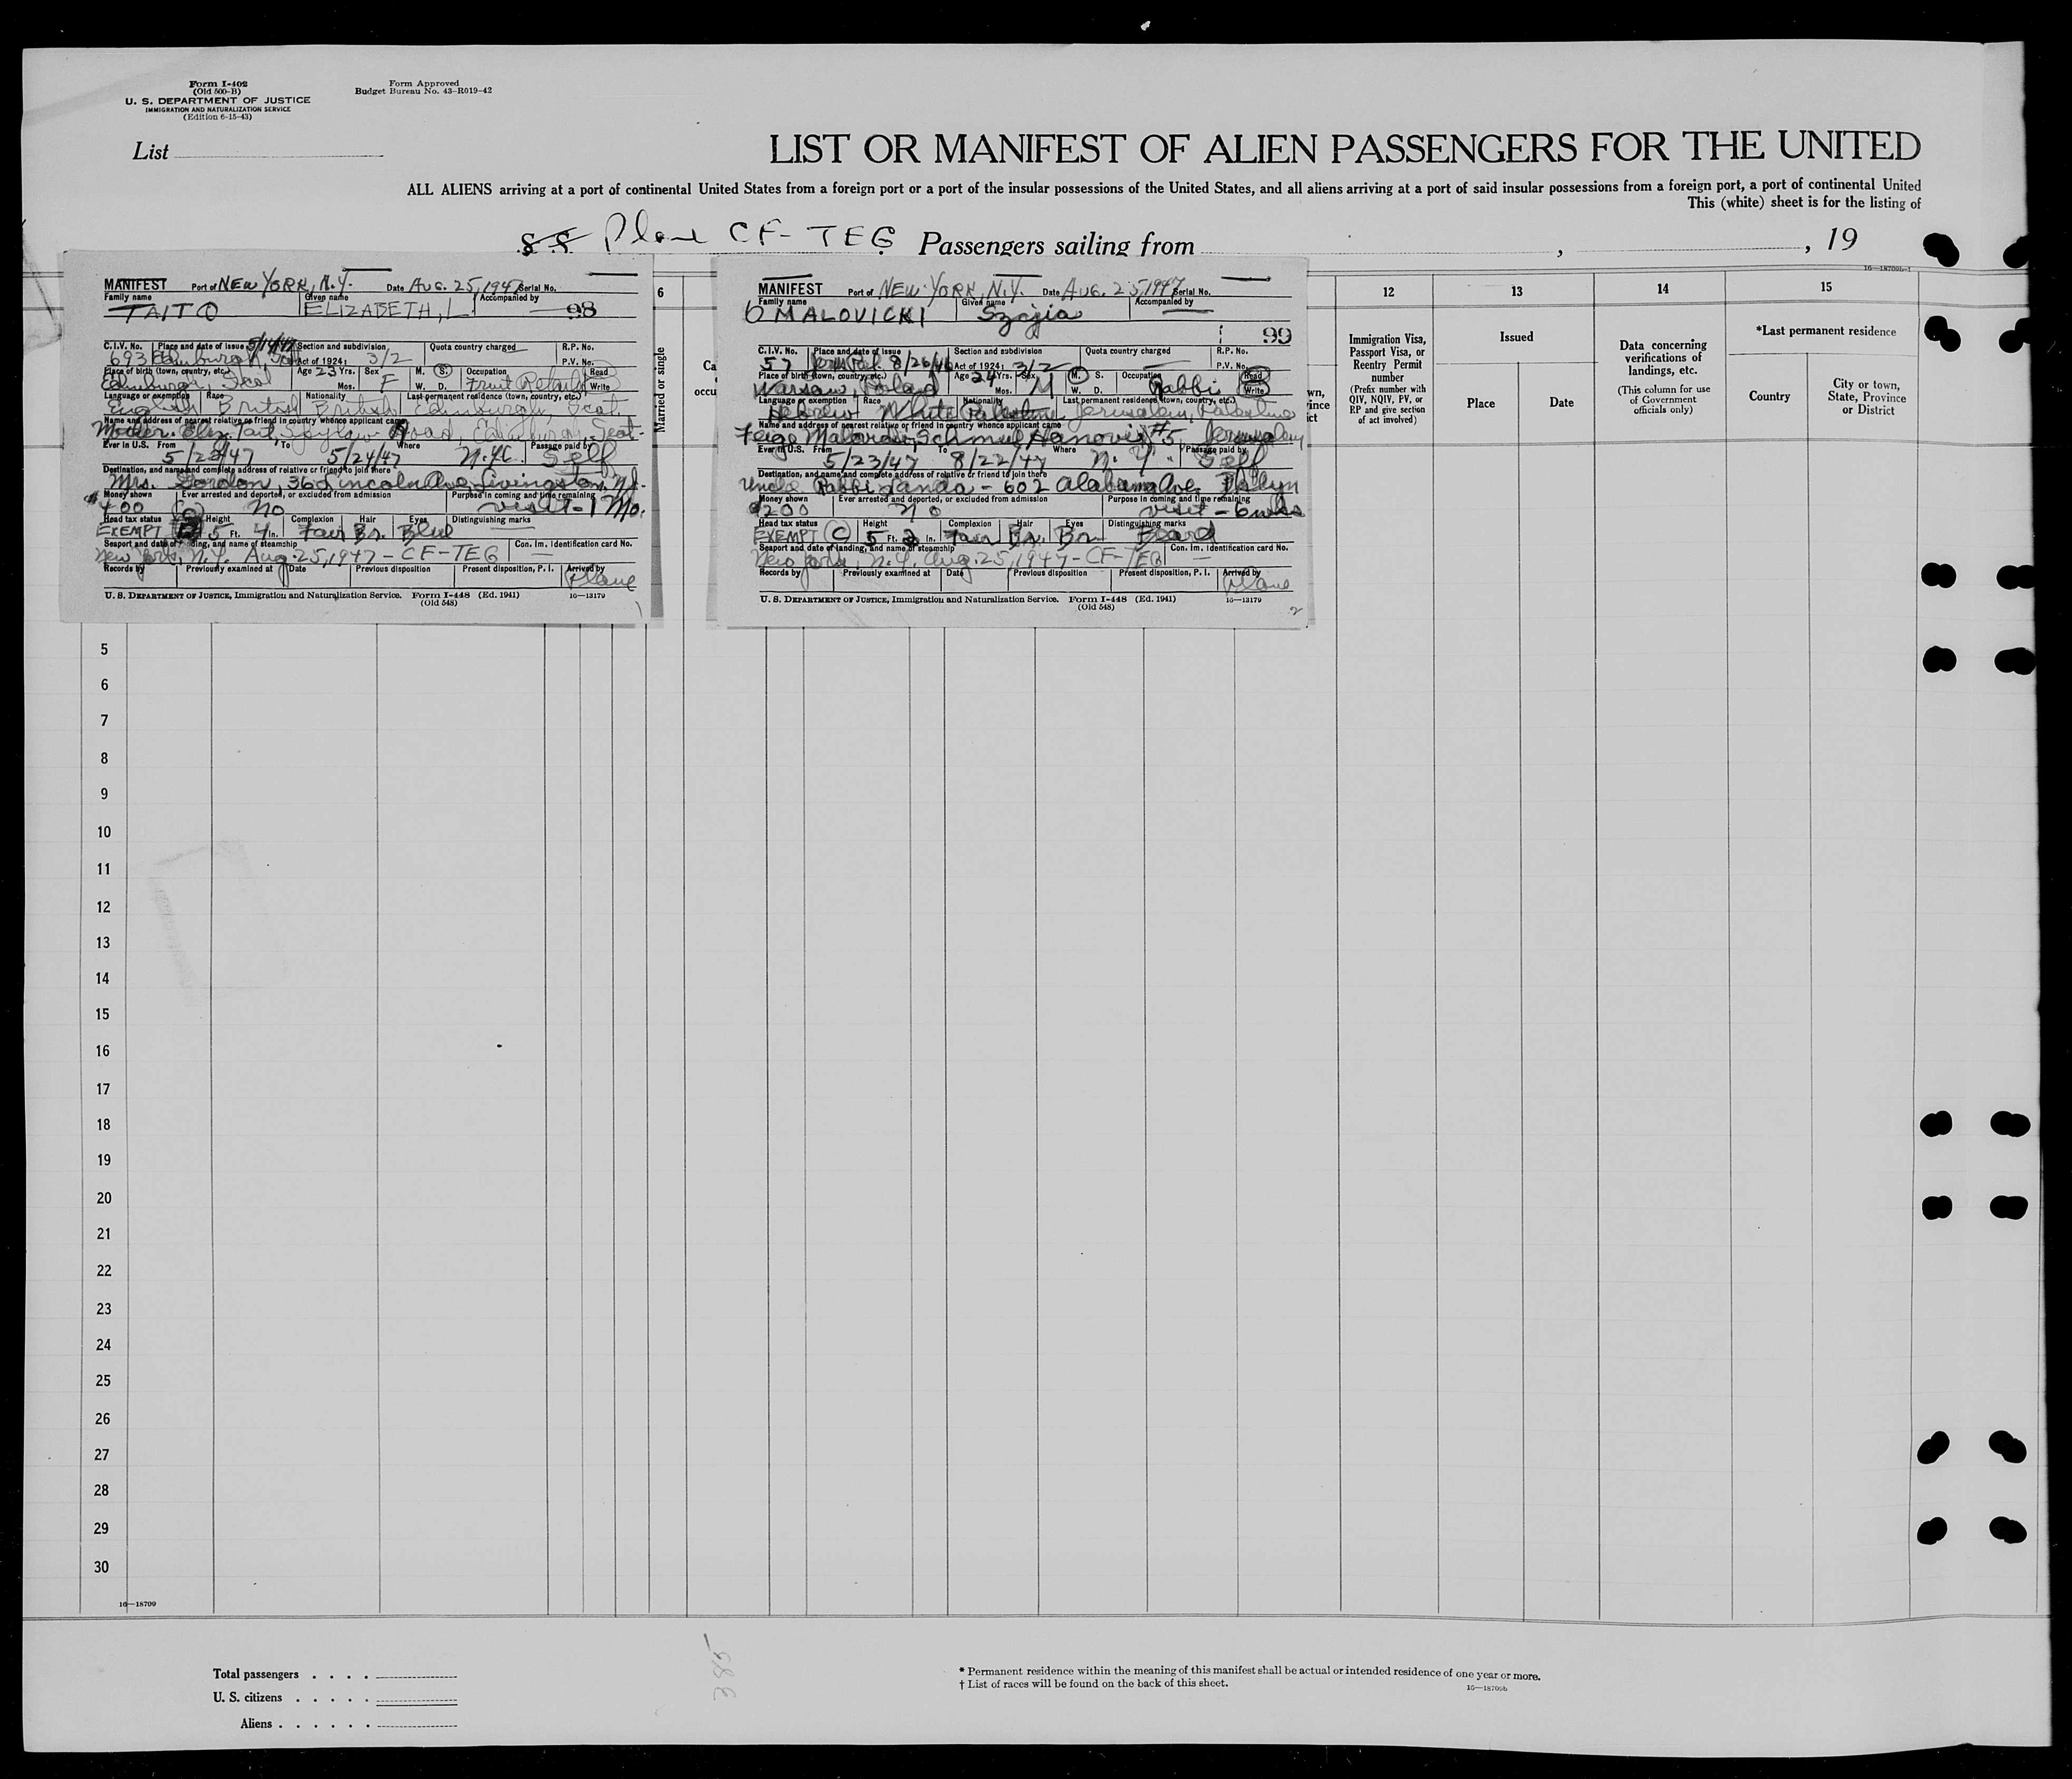 Form I-402
(Old 500-B)
U. S. DEPARTMENT OF JUSTICE
IMMIGRATION AND NATURALIZATION SERVICE
(Edition 6-15-43)
Form Approved
Budget Bureau No. 43-R019-42
List
LIST OR MANIFEST OF ALIEN PASSENGERS FOR THE UNITED
ALL ALIENS arriving at a port of continental United States from a foreign port or a port of the insular possessions of the United States, and all aliens arriving at a port of said insular possessions from a foreign port, a port of continental United
This (white) sheet is for the listing of
S.S. Plane CF-TEG Passengers sailing from , , 19
16—18709b-1
MANIFEST Port of NEW YORK, N.Y. Date AUG. 25, 1947 Serial No.
Family name Given name Accompanied by
TAIT ELIZABETH, L. 98
C.I.V. No. Place and date of issue 5/14/47 Section and subdivision Quota country charged R.P. No.
693 Edinburgh, Scot Act of 1924: 3/2 P.V. No.
Place of birth (town, country, etc.) Age 23 Yrs. Sex M. S. Occupation Read
Edinburgh, Scot Mos. F W. D. Fruit Write
Language or exemption Race Nationality Last permanent residence (town, country, etc.)
English British British Edinburgh, Scot.
Name and address of nearest relative or friend in country whence applicant came
Mother. Eliz. Tait, Road, Edinburgh Scot.
Ever in U.S. From To Where Passage paid by
5/23/47 5/24/47 N.Y.C. Self
Destination, and name and complete address of relative or friend to join there
Mrs. Gordon, 36 Lincoln Ave, Livingston, N.J.
Money shown Ever arrested and deported, or excluded from admission Purpose in coming and time remaining
$400 No visit - 1 Mo.
Head tax status Height Complexion Hair Eyes Distinguishing marks
EXEMPT 5 Ft. 4 In. Fair Br. Blue
Seaport and date of landing, and name of steamship Con. Im. Identification card No.
New York, N.Y. Aug. 25, 1947 - CF-TEG
Records by Previously examined at Date Previous disposition Present disposition, P. I. Arrived by
Plane
U. S. DEPARTMENT OF JUSTICE, Immigration and Naturalization Service. Form I-448 (Ed. 1941) 16—13179
(Old 548)
1
MANIFEST Port of NEW YORK, N.Y. Date AUG. 25, 1947 Serial No.
Family name Given name Accompanied by
MALOVICKI Szajia
99
C.I.V. No. Place and date of issue Section and subdivision Quota country charged R.P. No.
57 8/26/46 Act of 1924: 3/2 P.V. No.
Place of birth (town, country, etc.) Age 24 Yrs. Sex M. S. Occupation Read
Warsaw, Poland Mos. M W. D. Rabbi Write
Language or exemption Race Nationality Last permanent residence (town, country, etc.)
Hebrew White Palestine Jerusalem, Palestine
Name and address of nearest relative or friend in country whence applicant came
Feige Schmuel Hanovi #5 Jerusalem
Ever in U.S. From To Where Passage paid by
5/23/47 8/22/47 N.Y. Self
Destination, and name and complete address of relative or friend to join there
Uncle Rabbi Landa - 602 Alabama Ave Bklyn
Money shown Ever arrested and deported, or excluded from admission Purpose in coming and time remaining
$200 No visit - 6 wks
Head tax status Height Complexion Hair Eyes Distinguishing marks
EXEMPT (C) 5 Ft. In. Fair Br. Br. Beard
Seaport and date of landing, and name of steamship Con. Im. Identification card No.
New York, N.Y. Aug. 25, 1947 - CF-TEG
Records by Previously examined at Date Previous disposition Present disposition, P. I. Arrived by
Plane
U. S. DEPARTMENT OF JUSTICE, Immigration and Naturalization Service. Form I-448 (Ed. 1941) 16—13179
(Old 548)
2
6
Married or single
Ca
occu
wn,
ince
ict
12
Immigration Visa,
Passport Visa, or
Reentry Permit
number
(Prefix number with
QIV, NQIV, PV, or
RP and give section
of act involved)
13
Issued
Place
Date
14
Data concerning
verifications of
landings, etc.
(This column for use
of Government
officials only)
15
*Last permanent residence
Country
City or town,
State, Province
or District
5
6
7
8
9
10
11
12
13
14
15
16
17
18
19
20
21
22
23
24
25
26
27
28
29
30
16—18709
Total passengers . . . .
U. S. citizens . . . . .
Aliens . . . . . .
385
* Permanent residence within the meaning of this manifest shall be actual or intended residence of one year or more.
† List of races will be found on the back of this sheet.
16—18709b